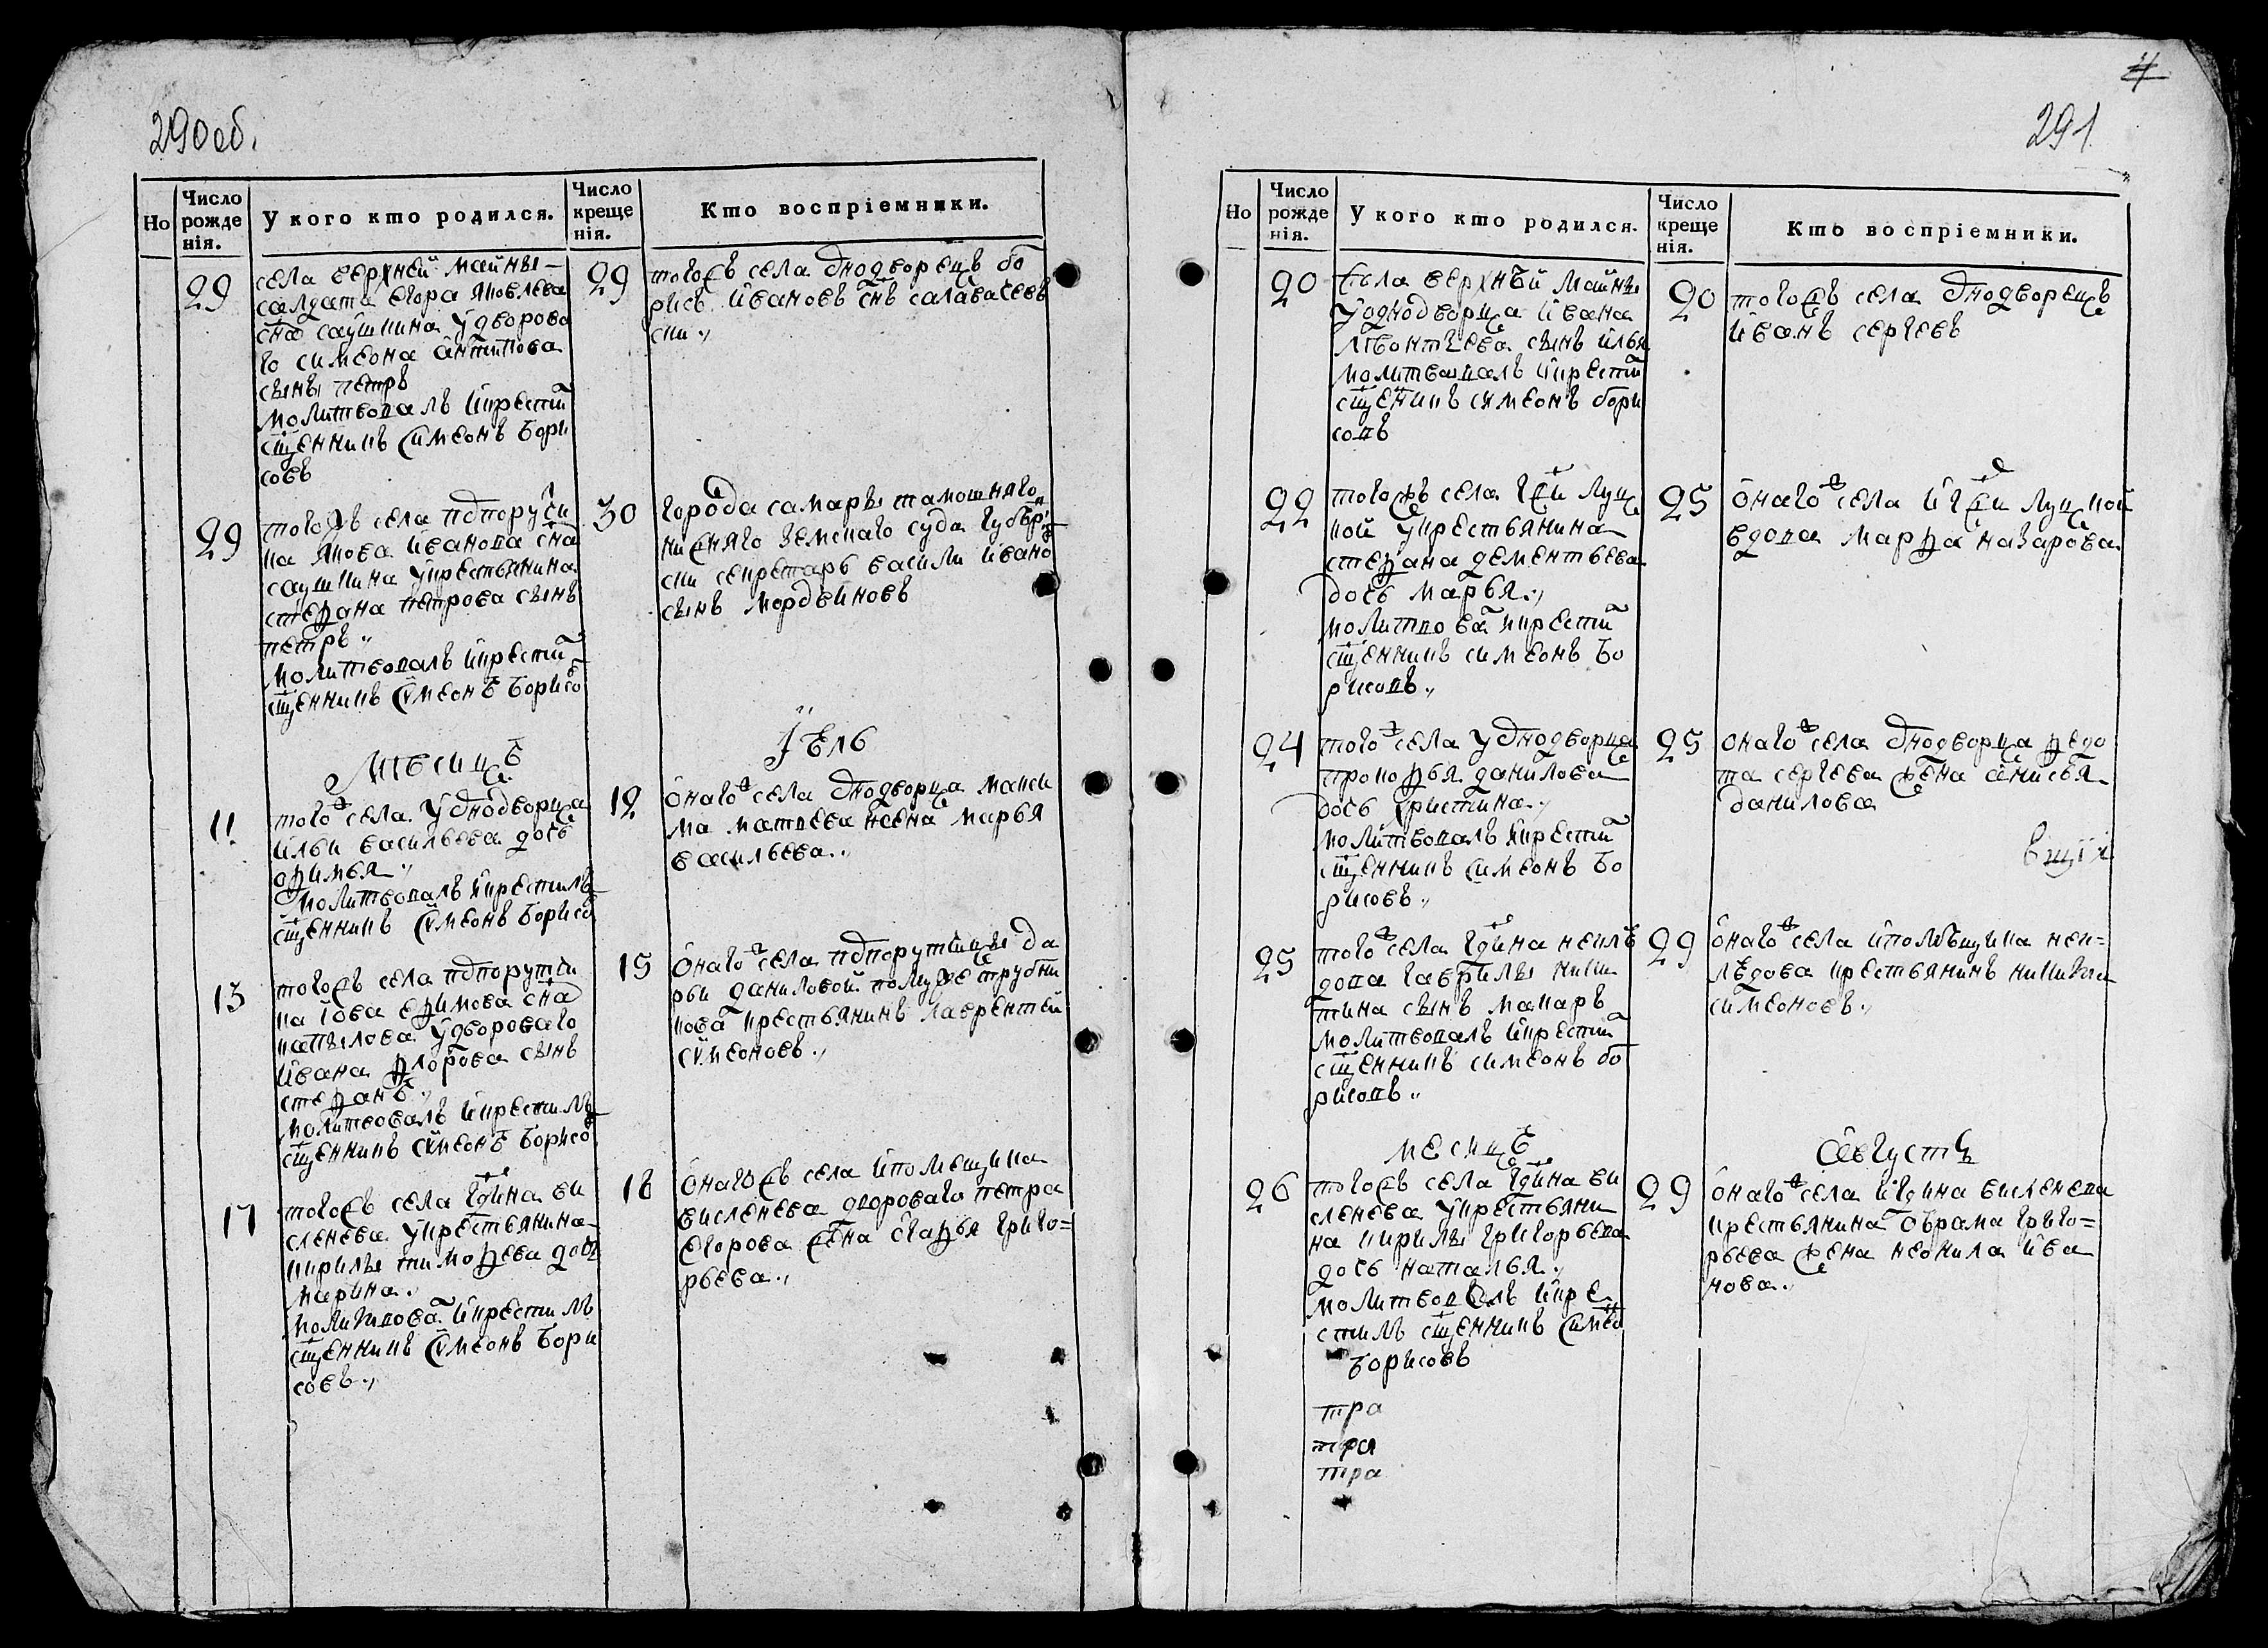 290 об.
Но
Число рожденія.
У кого кто родился.
Число крещенія.
Кто воспріемники.
29
села верхней майны
салдата егора яковлева
сна саушкина у дворова
го симеона антипова
сынъ петръ
молитвовалъ и крести
сщенникъ симеонъ бори
совъ
29
тогожъ села однодворецъ бо
рисъ ивановъ снъ салавачевъ
ски
29
тогожъ села подпоручи
ка якова иванова сна
саушкина у крестьянина
стефана петрова сынъ
петръ
молитвовалъ и крести
сщенникъ симеонъ борисо
30
города самары тамошняго
нижняго земскаго суда губер
ски секретарь васили ивано
сынъ мордвиновъ
месицъ
июль
11
того ж села у однодворца
ильи васильева дочь
офимья
молитвовалъ и крестилъ
сщенникъ симеонъ борисо
12
онаго ж села однодворца макси
ма матвева жена марья
васильева
13
тогожъ села подпоручи
ка іова ефимова сна
напылова у дворового
ивана флорова сынъ
стефанъ
молитвовалъ и крестилъ
сщенникъ симеонъ борисо
15
онаго ж села подпоручицы да
рьи даниловой
крестьянинъ лаврентей
симеоновъ
17
тогожъ села гдина ви
сленева у крестьянина
кирилы тимофева дочь
марина
молитвова и крестилъ
сщенникъ симеонъ бори
совъ
18
онагожъ села помещика
висленева двороваго петра
егорова жена агафья григо=
рьева
4
291
Но
Число рожденія.
У кого кто родился.
Число крещенія.
Кто воспріемники.
20
села верхнъй майны
у однодворца ивана
лѣвонтьева сынъ илья
молитвовалъ и крести
сщеникъ симеонъ бори
совъ
20
тогожъ села однодворецъ
иванъ сергеевъ
22
тогожъ села гжи луц
кой у крестьянина
стефана дементьева
дочь марья
молитвова и крести
сщенникъ симеонъ бо
рисовъ
25
онаго ж села и гжи луцкой
вдова марфа назарова
24
того ж села у однодворца
прокофья данилова
дочь христина
молитвовалъ и крести
сщенникъ симеонъ бо
рисовъ
25
онаго ж села однодворца федо
та сергева жена анисья
данилова
25
того ж села гдина неклю
дова гаврилы ники
тина сынъ макаръ
молитвовалъ и крести
сщенникъ симеонъ бо
рисовъ
29
онаго ж села и помѣщика нек=
людова крестьянинъ никита
симеоновъ
месицъ
августъ
26
тогожъ села гдина ви
сленева у крестьяни
на кирилы григорьева
дочь наталья
молитвовалъ и кре
стилъ сщенникъ симео
борисовъ
29
онаго ж села и гдина висленева
крестьянина аврама григо=
рьева жена неонила ива
нова
тра
тра
тра